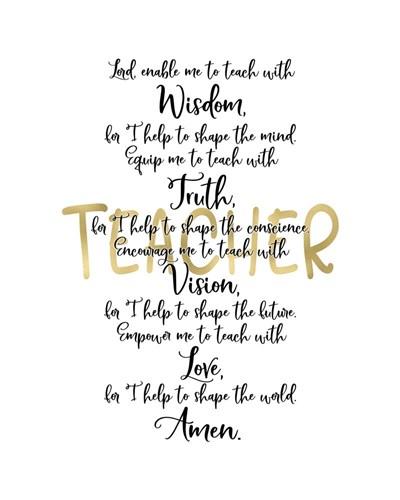 Lord, enable me to teach with
Wisdom,
for I help to shape the mind.
Equip me to teach with
Truth,
for I help to shape the conscience.
TEACHER
Encourage me to teach with
Vision,
for I help to shape the future.
Empower me to teach with
Love,
for I help to shape the world.
Amen.